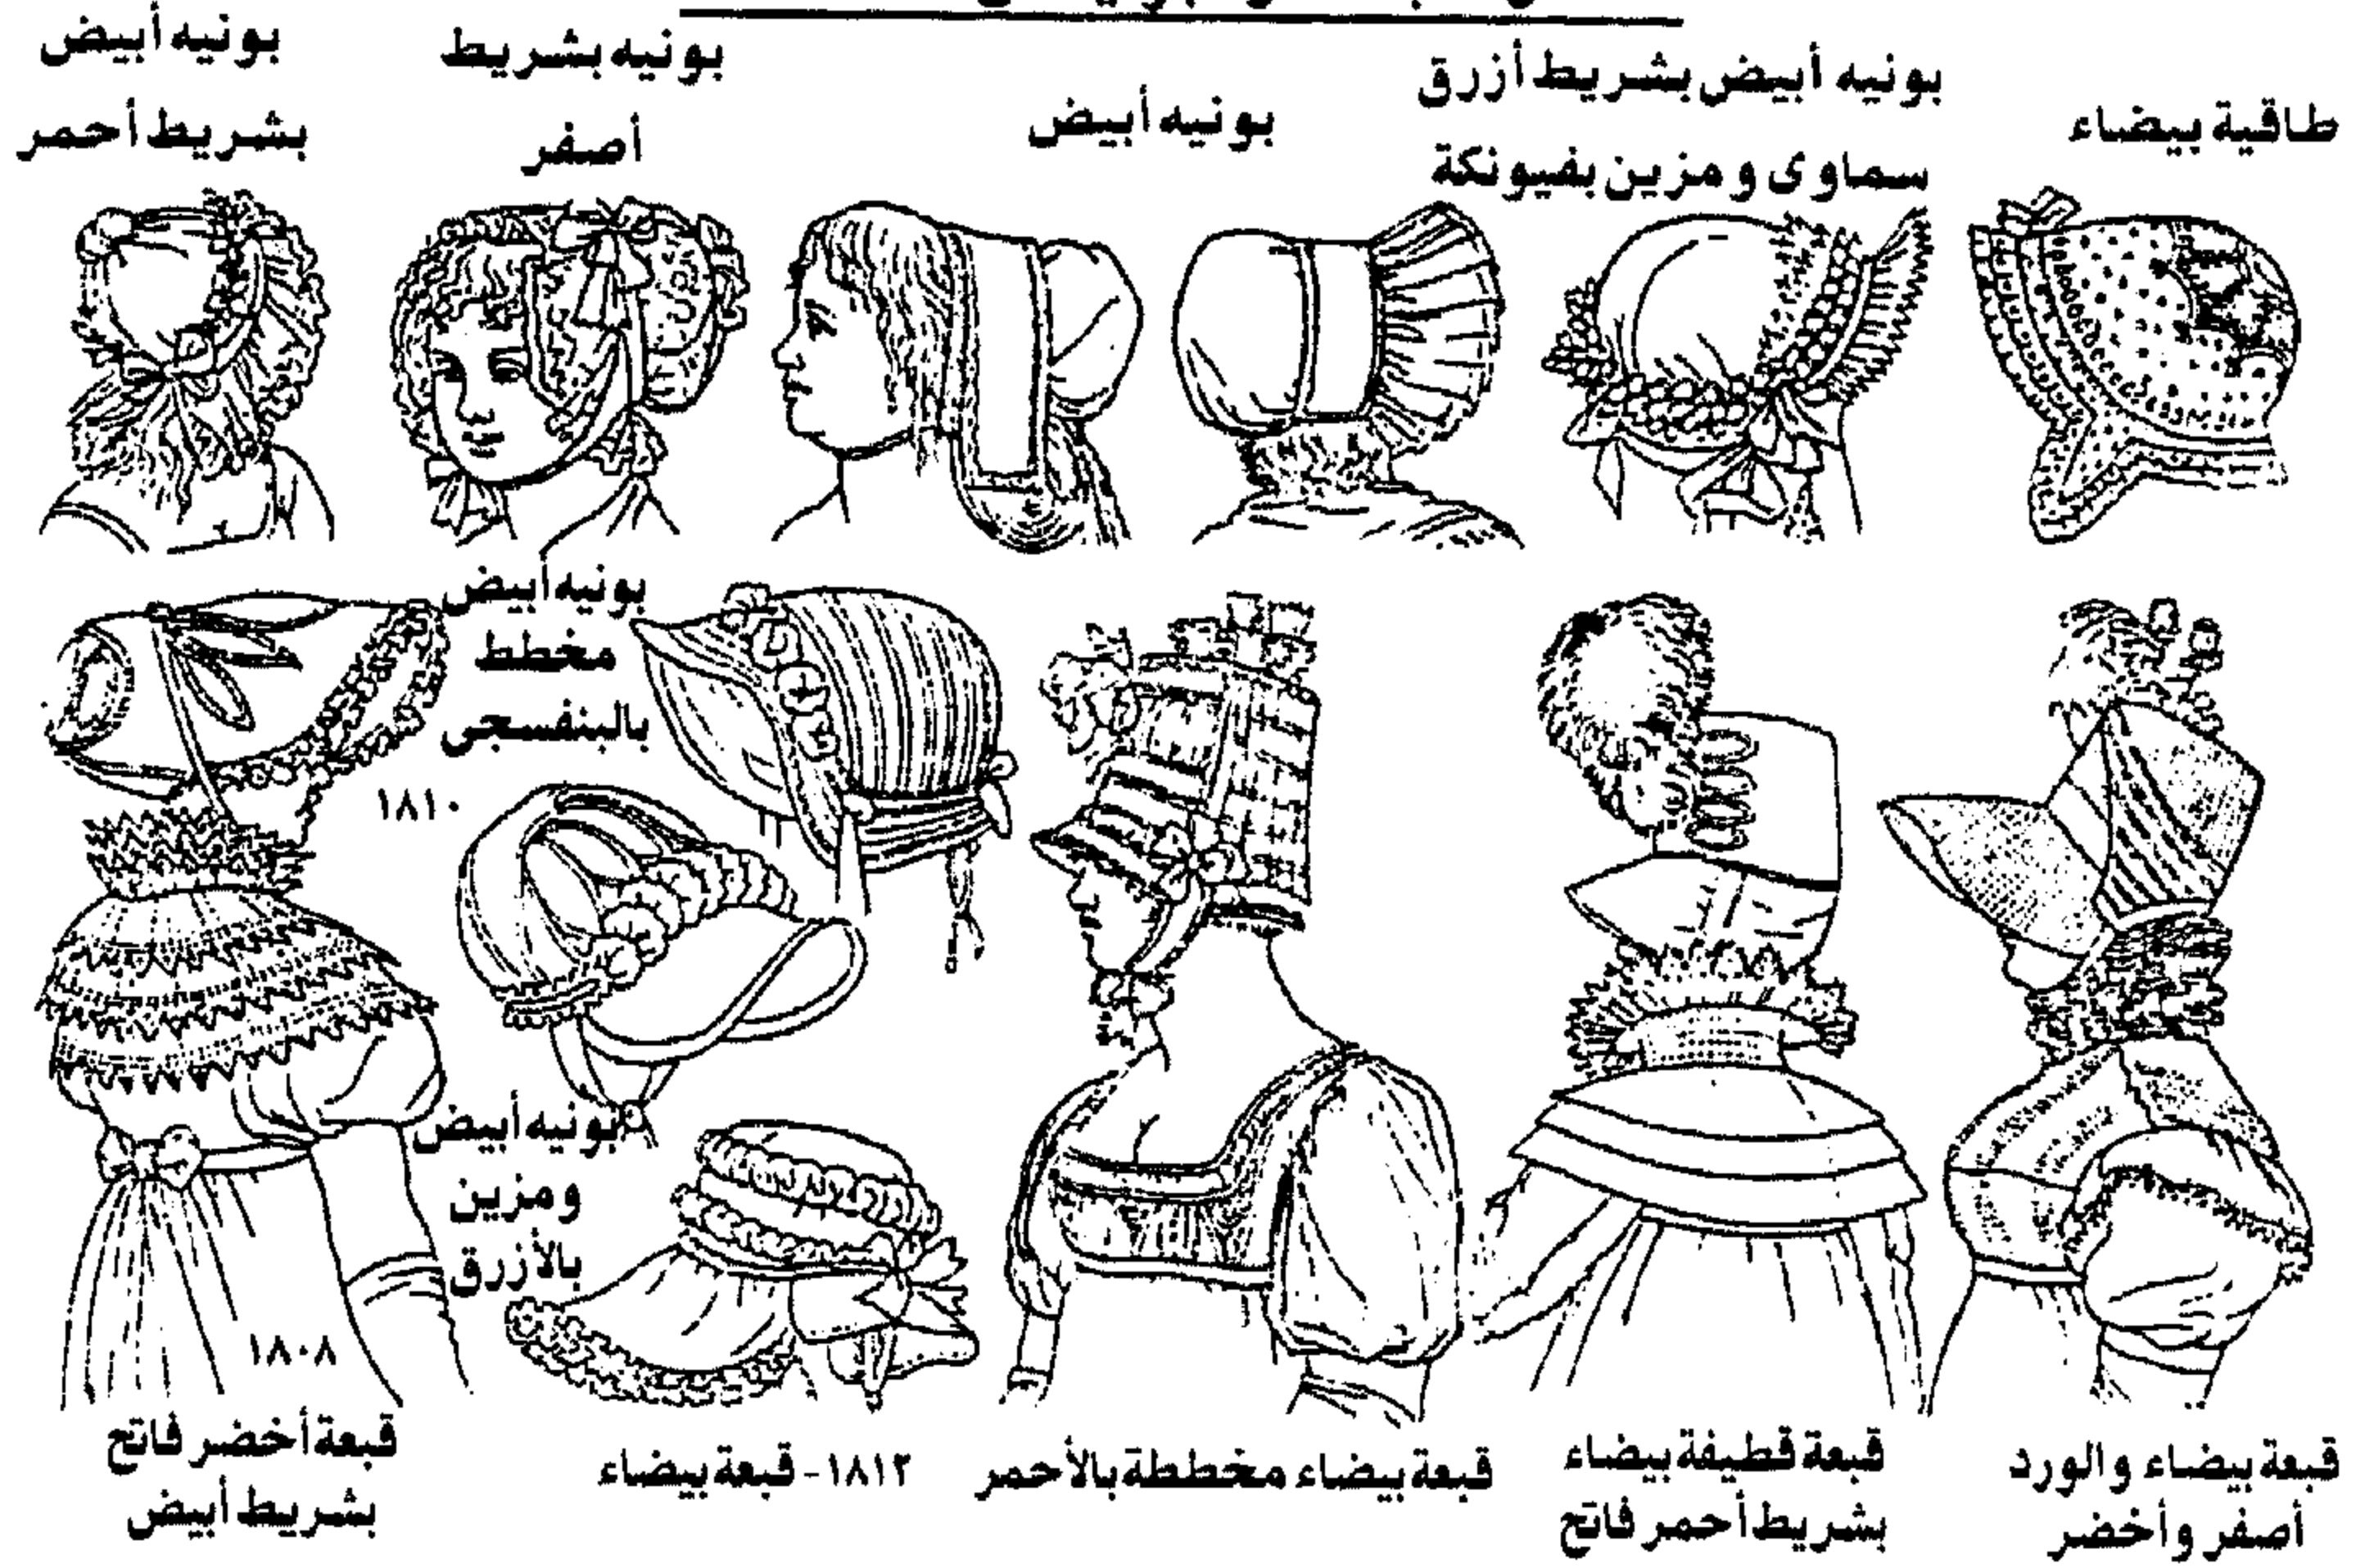 طاقية بيضاء
بونيه أبيض بشريط أزرق
سماوى ومزين بفيونكة
بونيه أبيض
بونيه بشريط
أصفر
بونيه أبيض
بشريط أحمر
بونيه أبيض
مخطط
بالبنفسجى
١٨١٠
بونيه أبيض
ومزين
بالأزرق
١٨٠٨
قبعة بيضاء والورد
أصفر وأخضر
قبعة قطيفة بيضاء
بشريط أحمر فاتح
قبعة بيضاء مخططة بالأحمر
١٨١٢- قبعة بيضاء
قبعة أخضر فاتح
بشريط أبيض